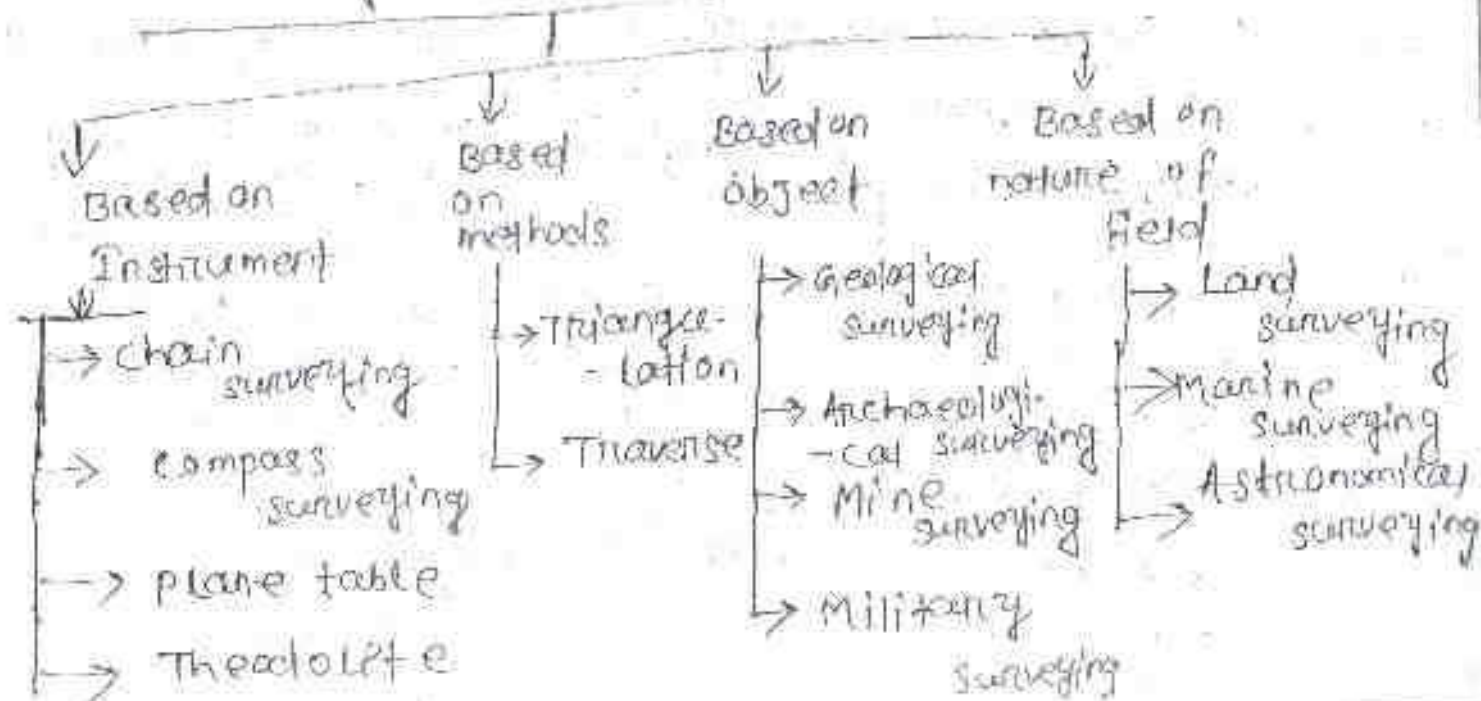 Based on
Instrument
chain
surveying
compass
surveying
plane table
Theodolite
Based
on
methods
Triangu-
- lation
Traverse
Based on
object
Geological
surveying
Archaeologi-
- cal surveying
Mine
surveying
Military
surveying
Based on
nature of
Field
Land
surveying
Marine
surveying
Astronomical
surveying